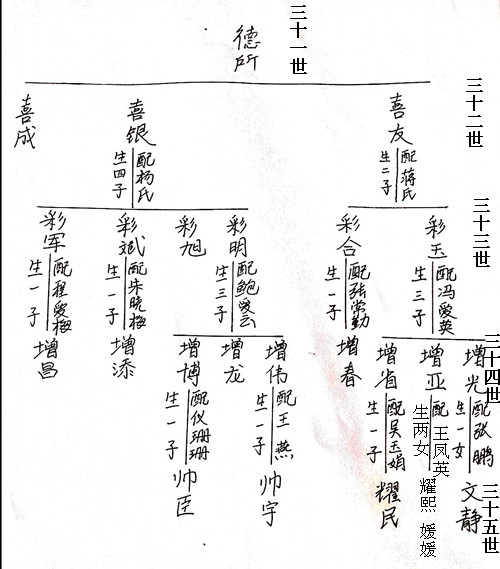 三十一世
德所
三十二世
喜友
配蒋氏
生二子
喜银
配杨氏
生四子
喜成
三十三世
彩玉
配冯爱英
生三子
彩合
配张常勤
生一子
彩明
配鲍爱云
生三子
彩旭
彩斌
配朱晓梅
生一子
彩军
配程爱梅
生一子
三十四世
增光
配张鹏
生一女
增亚
配王凤英
生两女
增省
配吴玉娟
生一子
增春
增伟
配王燕
生一子
增龙
增博
配仪珊珊
生一子
增添
增昌
三十五世
文静
耀熙 媛媛
耀民
帅宇
帅臣